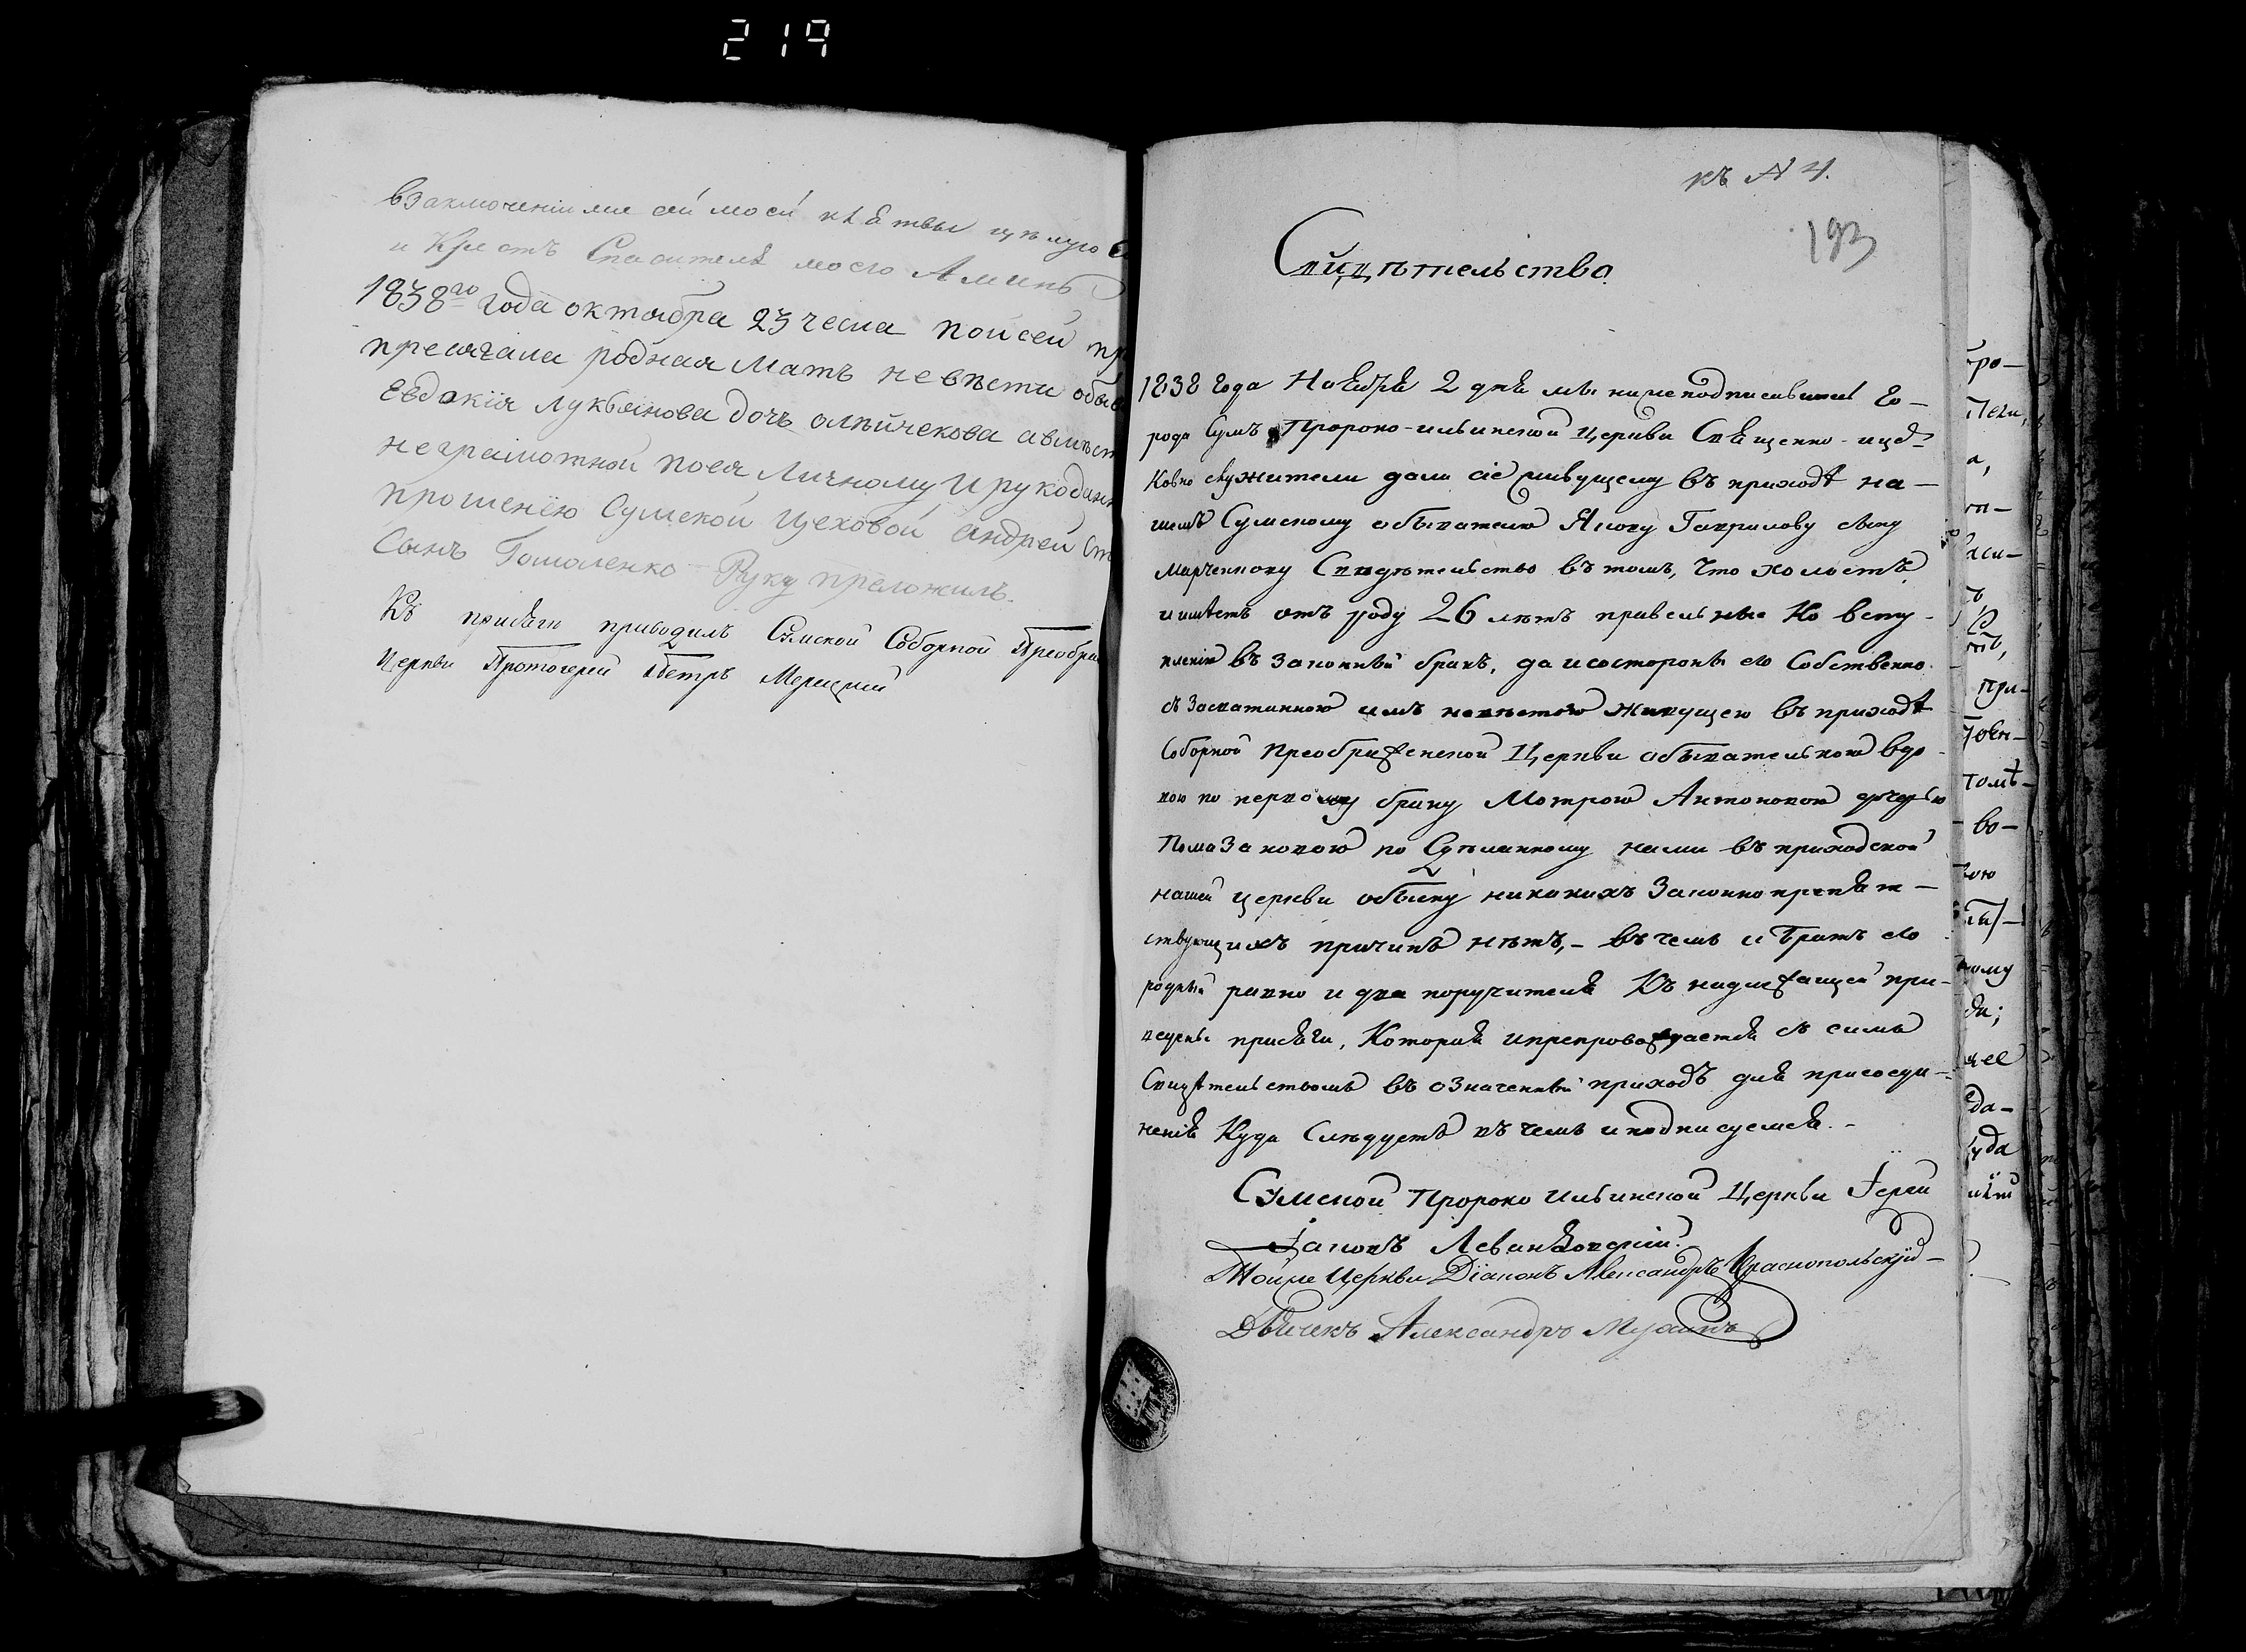 219
взаключеніи же сей моей клятвы цѣлую
и Крестъ Спасителя моего Аминь
1838го года октября 23 чесла поисей
пресягала родная Мать невести
Евдокія Лукьянова дочь
неграмотной поея Личному Ирукоданн
прошенію Сумской Цеховой андрей
Сынъ Гомоленко Руку преложилъ.
Къ присяги приводилъ Сумской Соборной Преобра
Церкви Протоіерей Петръ Мерецкій
къ № 4.
193
Свидѣтельство.
1838 года Ноября 2 дня мы нижеподписавшіеся Го-
рода Сумъ Пророко-ильинской Церкви Священно-
Ковно служители дали сіе живущему въ приходѣ на-
шемъ Сумскому обывателю Якову Гаврилову сыну
Марченкову Свидѣтельство въ томъ, что холостъ,
имѣетъ отъ роду 26 лѣтъ Ко всту-
пленію въ законный бракъ, да исостороны его Собственно
съ Засватанною имъ невѣстою живущею въ приходѣ
Соборной Преображенской Церкви обывательскою вдо-
вою по первому браку Мотрою Антоновою дочерью
по Сдѣланному нами въ приходской
нашей церкви обыску никакихъ Законно препят-
ствующихъ причинъ нѣтъ,- въ чемъ и Братъ его
родный равно и два поручителя Къ надлежащей при-
ведены присяги, Которая ипрепровождается съ симъ
Свидѣтельствомъ въ означенный приходъ для присоеди-
ненія Куда Слѣдуетъ въ чемъ иподписуемся.-
Сумской Пророко Ильинской Церкви Іерей
Іаковъ
Тойже Церкви Діаконъ Александръ Краснопольскій
Дьячекъ Александръ